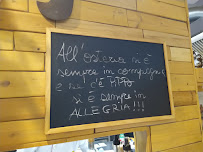 All'osteria si è
sempre in compagnia
e se c'è
si è sempre in
ALLEGRIA!!!